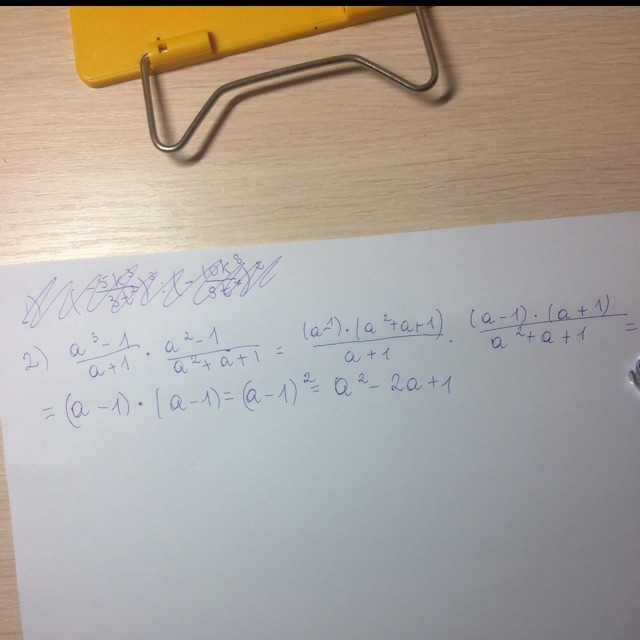 2) (a³ - 1)/(a + 1) · (a² - 1)/(a² + a + 1) = ((a - 1) · (a² + a + 1))/(a + 1) · ((a - 1) · (a + 1))/(a² + a + 1) =
= (a - 1) · (a - 1) = (a - 1)² = a² - 2a + 1